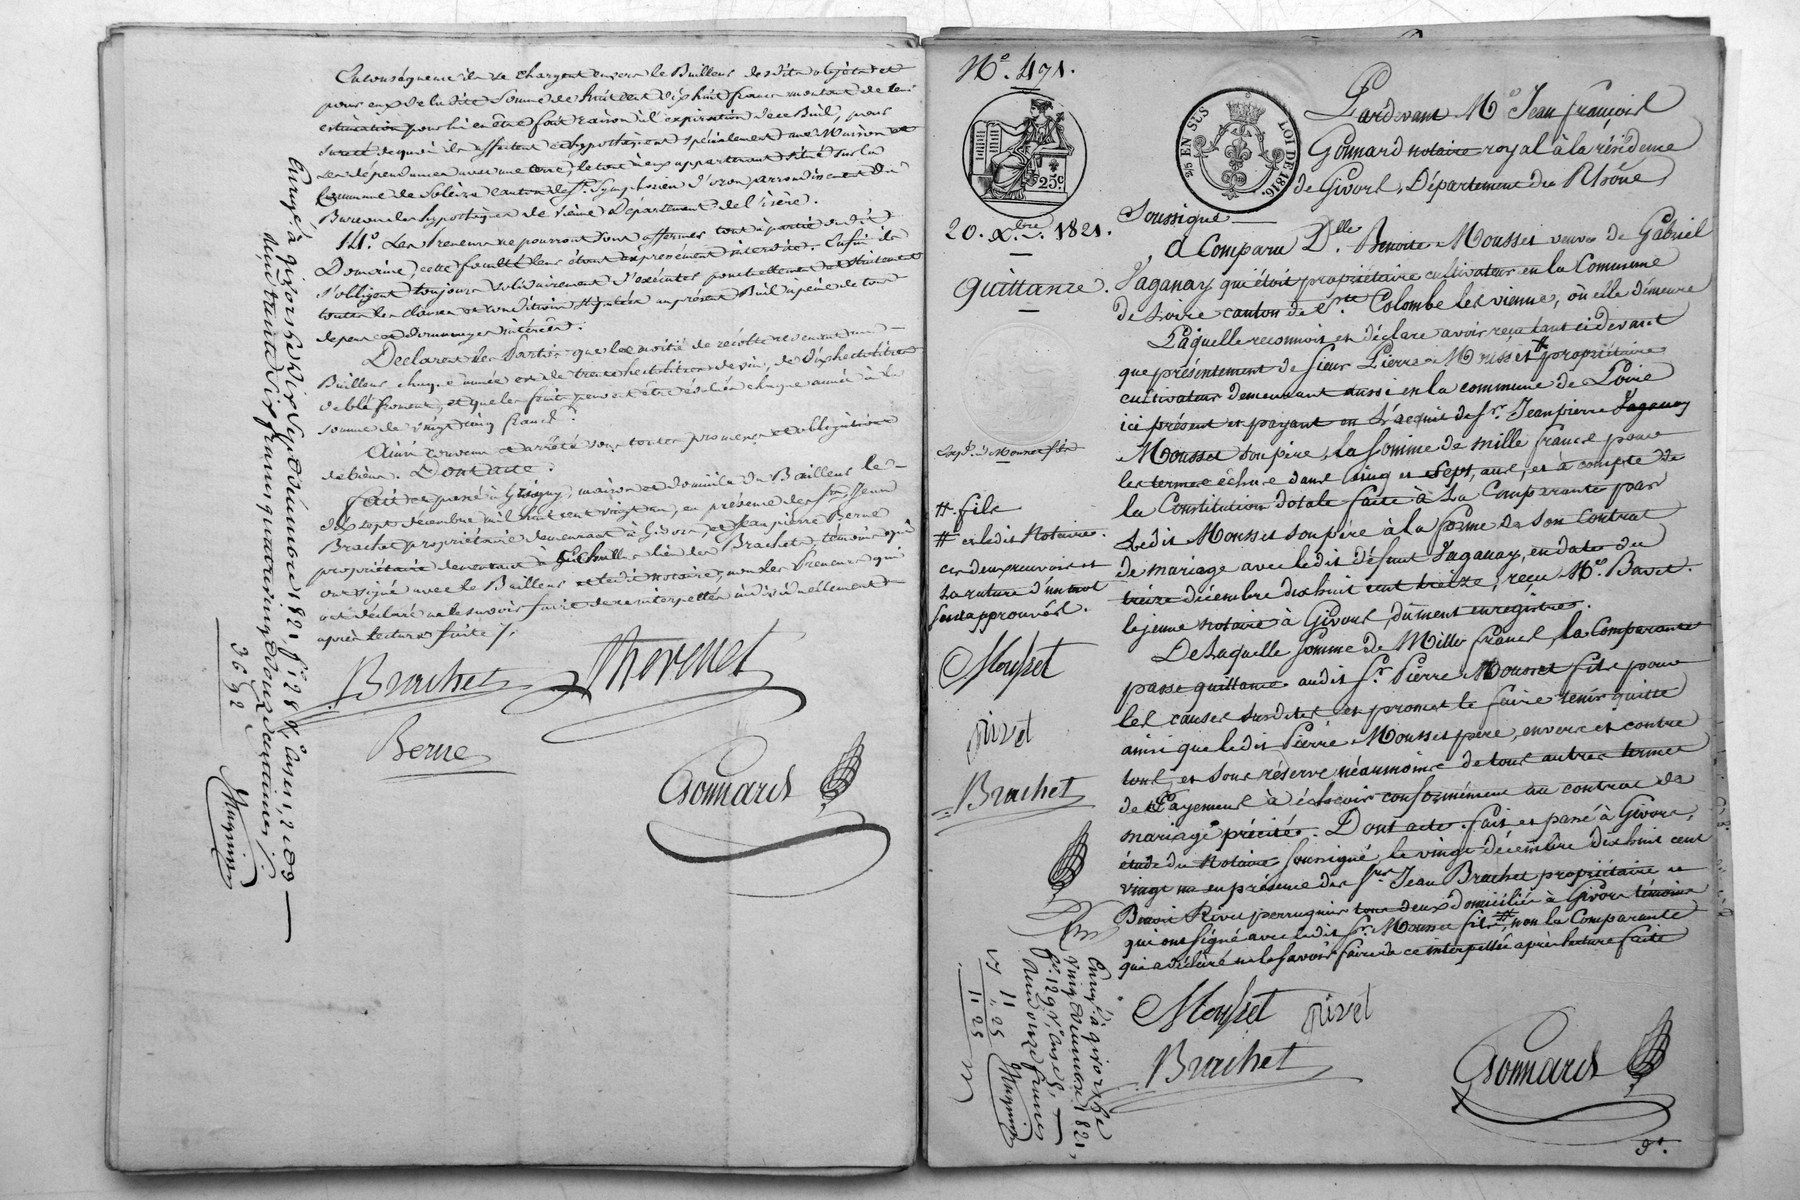 En conséquence ils se chargent envers le Bailleur desdits objets et
pour eux de la dite somme de huit cent dix huit francs montant de leur
estimation pour lui en être fait raison à l'expiration de ce Bail, pour
sureté de quoi ils affectent et hypothèquent spécialement une Maison et
ses dépendances avec une terre, le tout à eux appartenant situé sur la
Commune de Solèze canton de St. Symphorien d'ozon arrondissement du
Bureau des hypothèques de Vienne Département de l'isère.
14.o Les Preneurs ne pourront sous affermer tout ou partie dudit
Domaine, cette faculté leur étant expressément interdite. Enfin ils
s'obligent toujours solidairement d'exécuter ponctuellement et strictement
toutes les clauses et conditions stipulées au présent Bail à peine de tous
dépens et dommages intérêts.
Déclarent les Parties que la moitié de récolte revenant au
Bailleur chaque année est de treize hectolitres de vin, de dix hectolitres
de blé froment, et que les fruits peuvent être évalués chaque année à la
somme de vingt cinq francs.
Ainsi convenu et arrêté sous toutes promesses et obligations
de biens. Dont acte.
fait et passé à Grigny, maison et domicile du Bailleur le
dix sept décembre mil huit cent vingt un, en présence des srs. Jean
Brachet propriétaire demeurant à Givors, et Jean pierre Berne
propriétaire demeurant à Echallas lieu des Brachets, témoins qui
ont signé avec le Bailleur et ledit notaire, non les Preneurs qui
ont déclaré ne le savoir faire de ce interpellés individuellement
après lecture faite /.
Brachet Thevenet
Berne
Gonnard
Enregé. à givors le dix sept décembre 1821 fo. 128 Vo. Cases 1, 2 et 3
reçu trente six francs quatre vingt douze centimes /.
36 92
Magnien
No. 471.
25c
2/5 EN SUS LOI DE 1816.
20. Xbre. 1821.
Quittance.
Exp.d. à Mousset fils
# fils
# et ledit Notaire.
ces deux renvois et
la rature d'un mot
sont approuvés.
Mousset
rivet
Brachet
Enregé. à givors le
vingt décembre 1821,
fo. 129 Vo. Case 5,
Reçu onze francs
11 25
Magnien
Pardevant Me. Jean françois
Gonnard notaire royal à la résidence
de Givors, Département du Rhône,
Soussigné
A Comparu Dlle. Benoite Mousset veuve de Gabriel
Vaganay qui étoit propriétaire cultivateur en la Commune
de Loire canton de Ste. Colombe les vienne, où elle demeure
Laquelle reconnoit et déclare avoir reçu tant ci devant
que présentement de sieur Pierre Mousset # propriétaire
cultivateur demeurant aussi en la commune de Loire
ici présent et payant en l'acquit de sr. Jean pierre Vaganay
Mousset son père, la somme de mille francs pour
les termes échus dans cinq et sept, aus, et à compte de
la Constitution dotale faite à la Comparante par
ledit Mousset son père à la forme de son Contrat
de mariage avec ledit défunt Vaganay, en date du
treize décembre dix huit cent treize, reçu Me. Bavet
le jeune notaire à Givors, dûment enregistré.
De laquelle somme de Mille francs, la Comparante
passe quittance audit sr. Pierre Mousset fils pour
les causes susdites et promet le faire tenir quitte
ainsi que ledit Pierre Mousset père, envers et contre
tous, et sous réserve néanmoins de tous autres termes
de Payement à échevoir conformément au contrat de
mariage précité. Dont acte. fait et passé à Givors,
étude du Notaire soussigné, le vingt décembre dix huit cent
vingt un en présence des srs. Jean Brachet propriétaire et
Benoit Rivet perruquier tous deux domiciliés à Givors témoins
qui ont signé avec ledit sr. Mousset fils #, non la Comparante
qui a déclaré ne le savoir faire de ce interpellée après lecture faite
Mousset rivet
Brachet
Gonnard